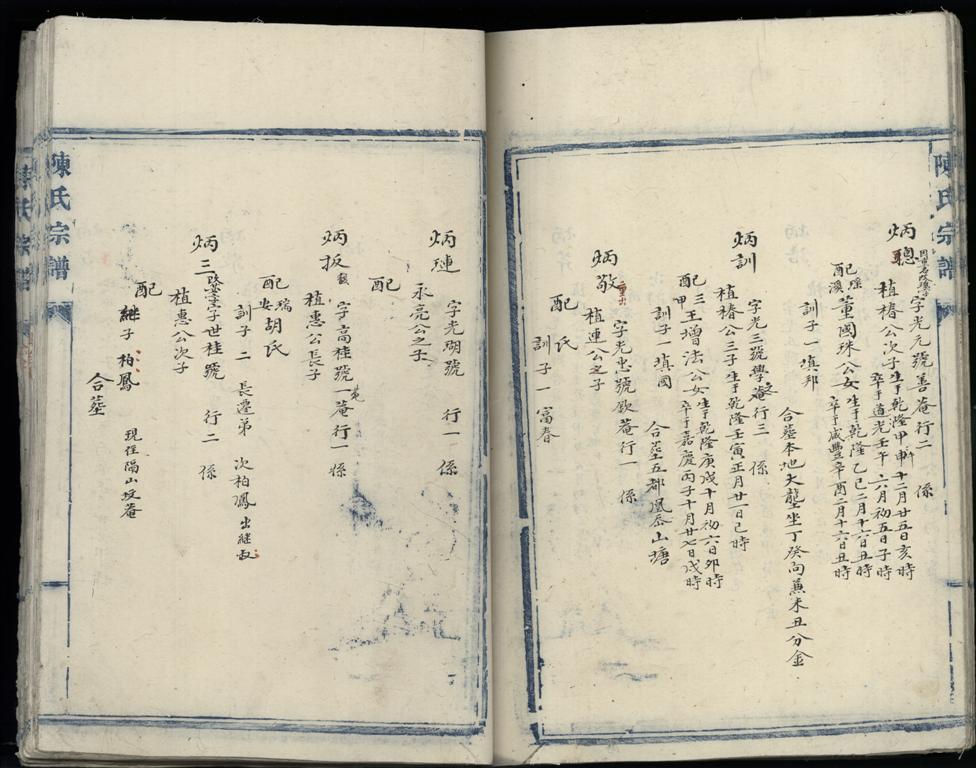 陳氏宗譜
炳聰
字光元號善菴行二 係
植椿公次子生于乾隆甲申十二月廿五日亥時
卒于道光壬午六月初五日子時
配瑶溪董國珠公女生于乾隆乙巳二月十六日丑時
卒于咸豐辛酉二月十六日丑時
訓子一填邦
合墓本地大壟坐丁癸向兼未丑分金
炳訓
字光三號學菴行三 係
植椿公三子生于乾隆壬寅正月廿一日巳時
配三甲王增法公女生于乾隆庚戌十月初六日卯時
卒于嘉慶丙子十月廿七日戌時
訓子一填國
合墓五都鳳岙山塘
炳敬
字光忠號欽菴行一 係
植連公之子
配 氏
訓子一富春
炳璉
字光瑚號 行一 係
永亮公之子
配
炳扳
字高桂號一菴行一係
植惠公長子
配瑞安胡氏
訓子二 長遷弟 次柏鳳出継叔
炳三
字世桂號 行二 係
植惠公次子
配
継子柏鳳
合墓
現住隔山垟菴
陳氏宗譜